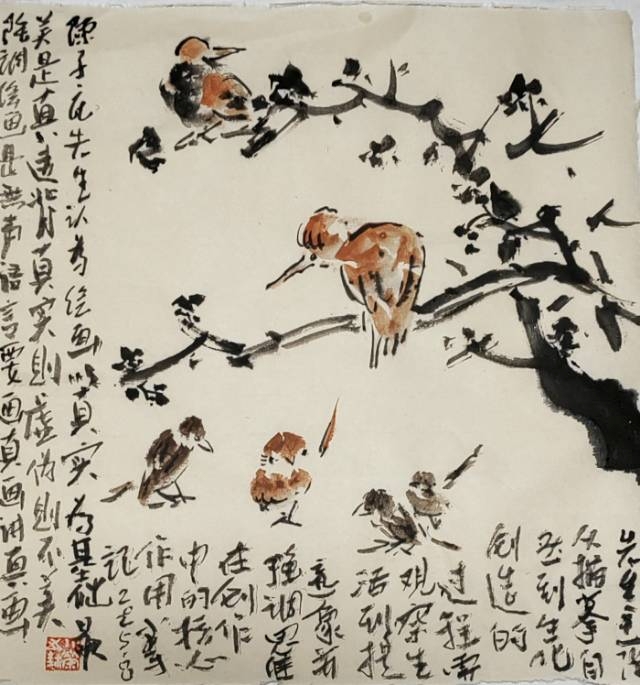 陈子庄先生认为绘画以真实为基础最
美是真违背真实則虚伪則不美
調绘画是無声語言要画真画讲真画
先生主
从描摹自
到生化
创造的
过程需
观察生
活到提
意象并
强调思维
在创作
中的核心
作用
记乙